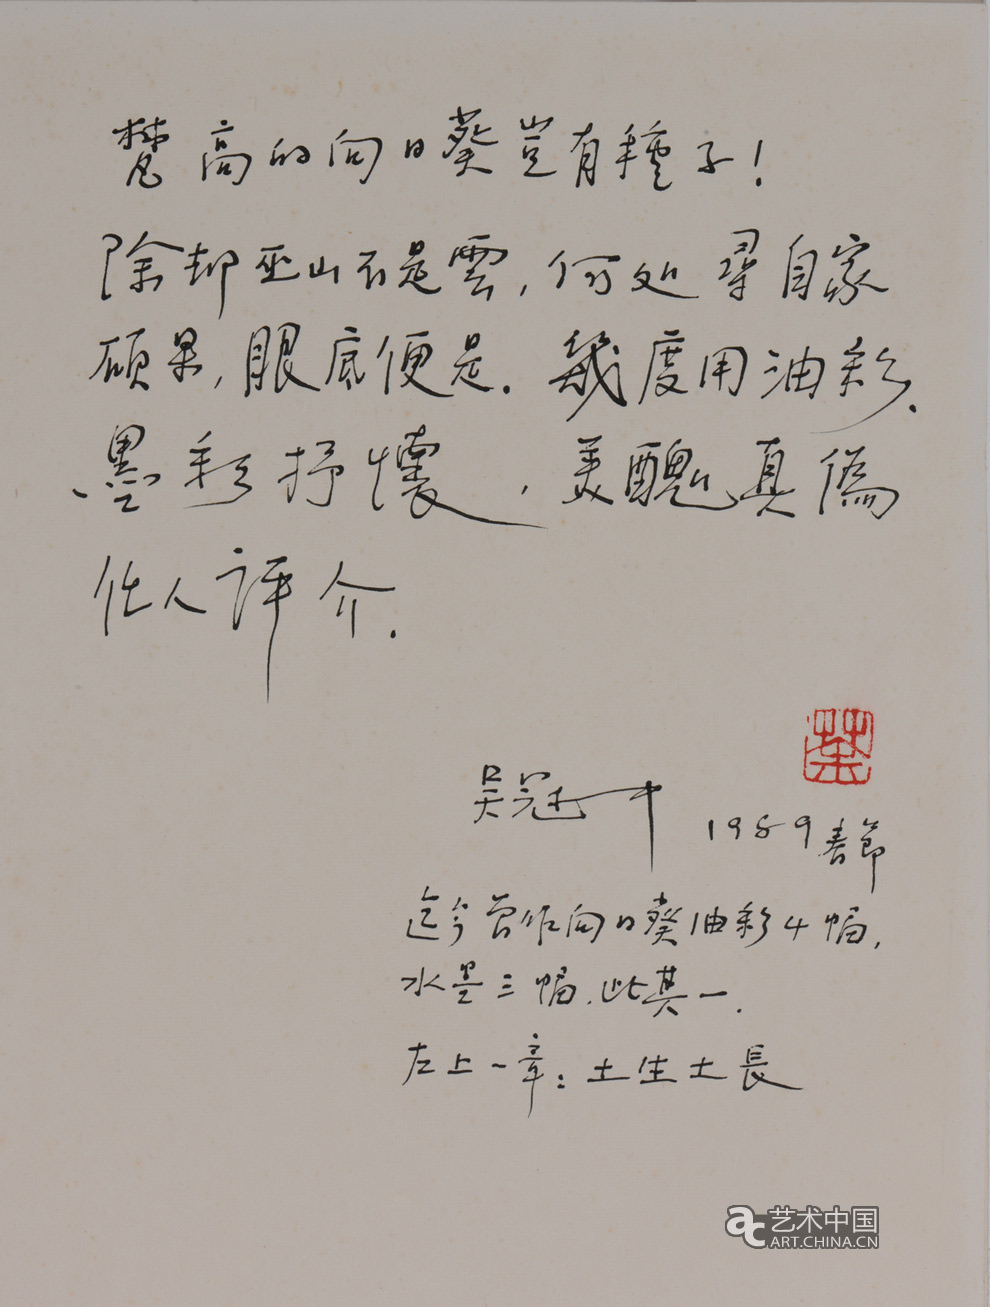 梵高的向日葵豈有種子！
除却巫山不是雲，何处尋自家
碩果，眼底便是．幾度用油彩．
墨彩抒懷，美醜真偽
任人評介．
荼
吴冠中 1989春節
迄今曾作向日葵油彩4幅，
水墨三幅．此其一．
左上一章：土生土長
艺术中国
ART.CHINA.CN